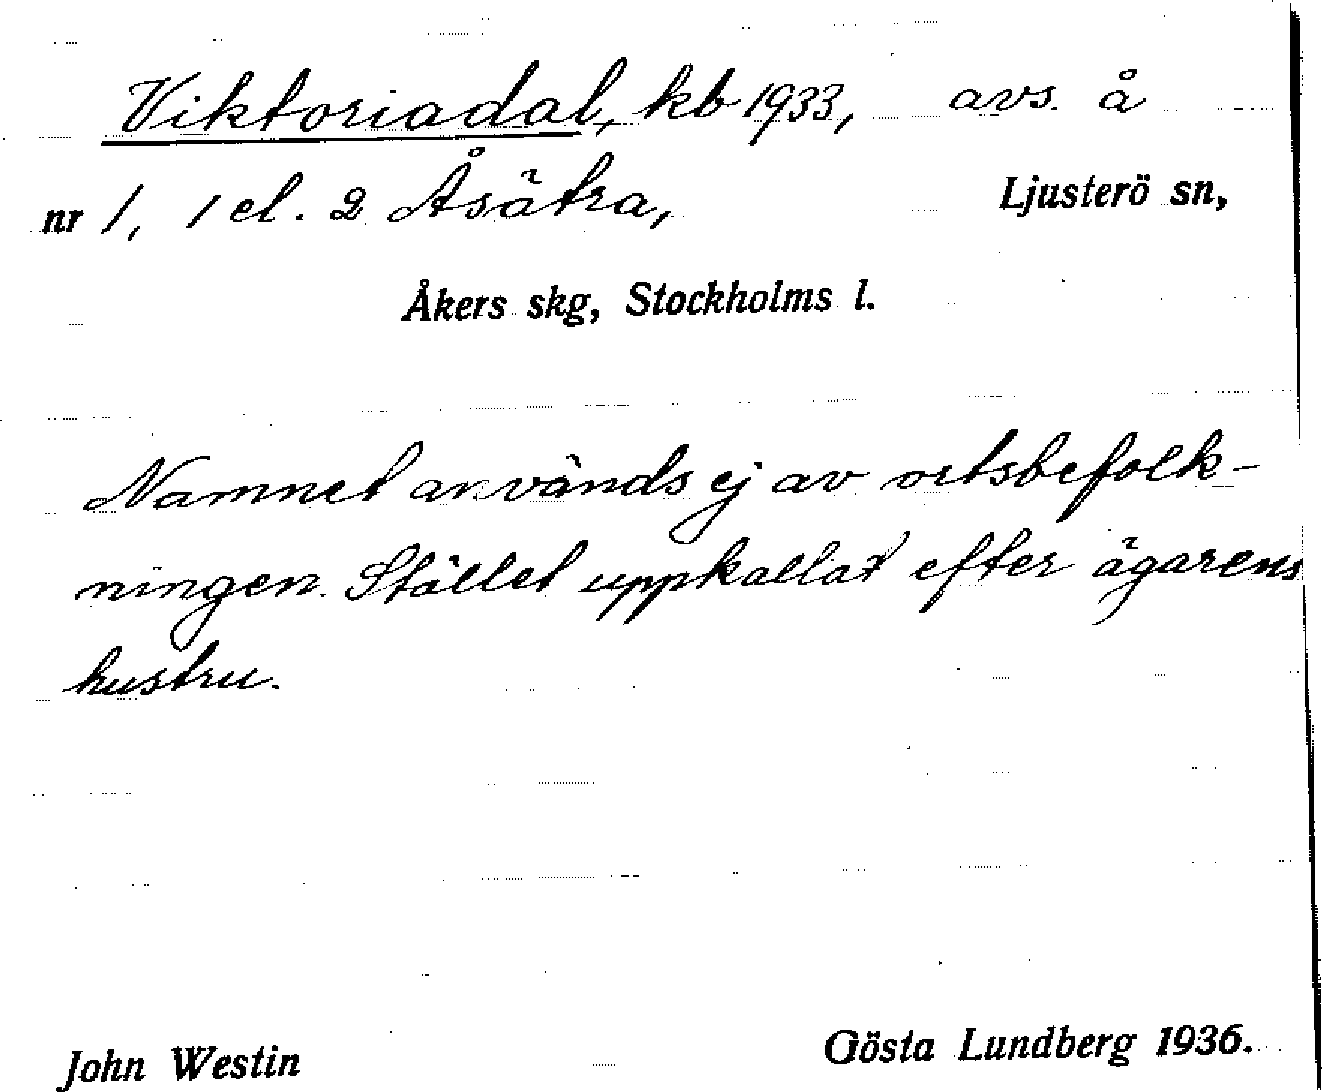 Viktoriadal, kb 1933, avs. å
nr 1, 1 el. 2 Åsätra, Ljusterö sn,
Åkers skg, Stockholms l.
Namnet används ej av ortsbefolk-
ningen. Stället uppkallat efter ägarens
hustru.
John Westin Gösta Lundberg 1936.